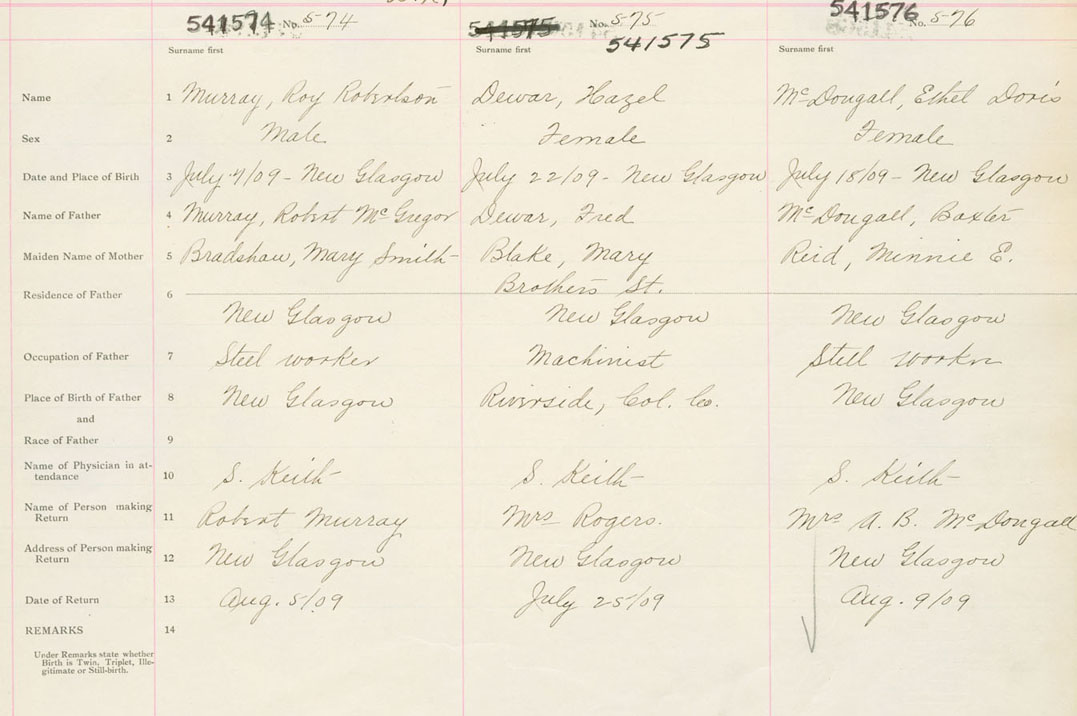 541574 No. 574
541575 No. 575
541575
541576 576
Surname first Surname first Surname first
Name 1 Murray, Roy Robertson Dewar, Hazel McDougall, Ethel Doris
Sex 2 Male Female Female
Date and Place of Birth 3 July 4/09 - New Glasgow July 22/09 - New Glasgow July 18/09 - New Glasgow
Name of Father 4 Murray, Robert McGregor Dewar, Fred McDougall, Baxter
Maiden Name of Mother 5 Bradshaw, Mary Smith Blake, Mary Reid, Minnie E.
Brothers St.
Residence of Father 6
New Glasgow New Glasgow New Glasgow
Occupation of Father 7 Steel worker Machinist Steel worker
Place of Birth of Father 8 New Glasgow Riverside, Col. Co. New Glasgow
and
Race of Father 9
Name of Physician in at-
tendance 10 S. Keith S. Keith S. Keith
Name of Person making
Return 11 Robert Murray Mrs Rogers. Mrs A. B. McDougall
Address of Person making
Return 12 New Glasgow New Glasgow New Glasgow
Date of Return 13 Aug. 5/09 July 25/09 Aug. 9/09
REMARKS 14
Under Remarks state whether
Birth is Twin, Triplet, Ille-
gitimate or Still-birth.